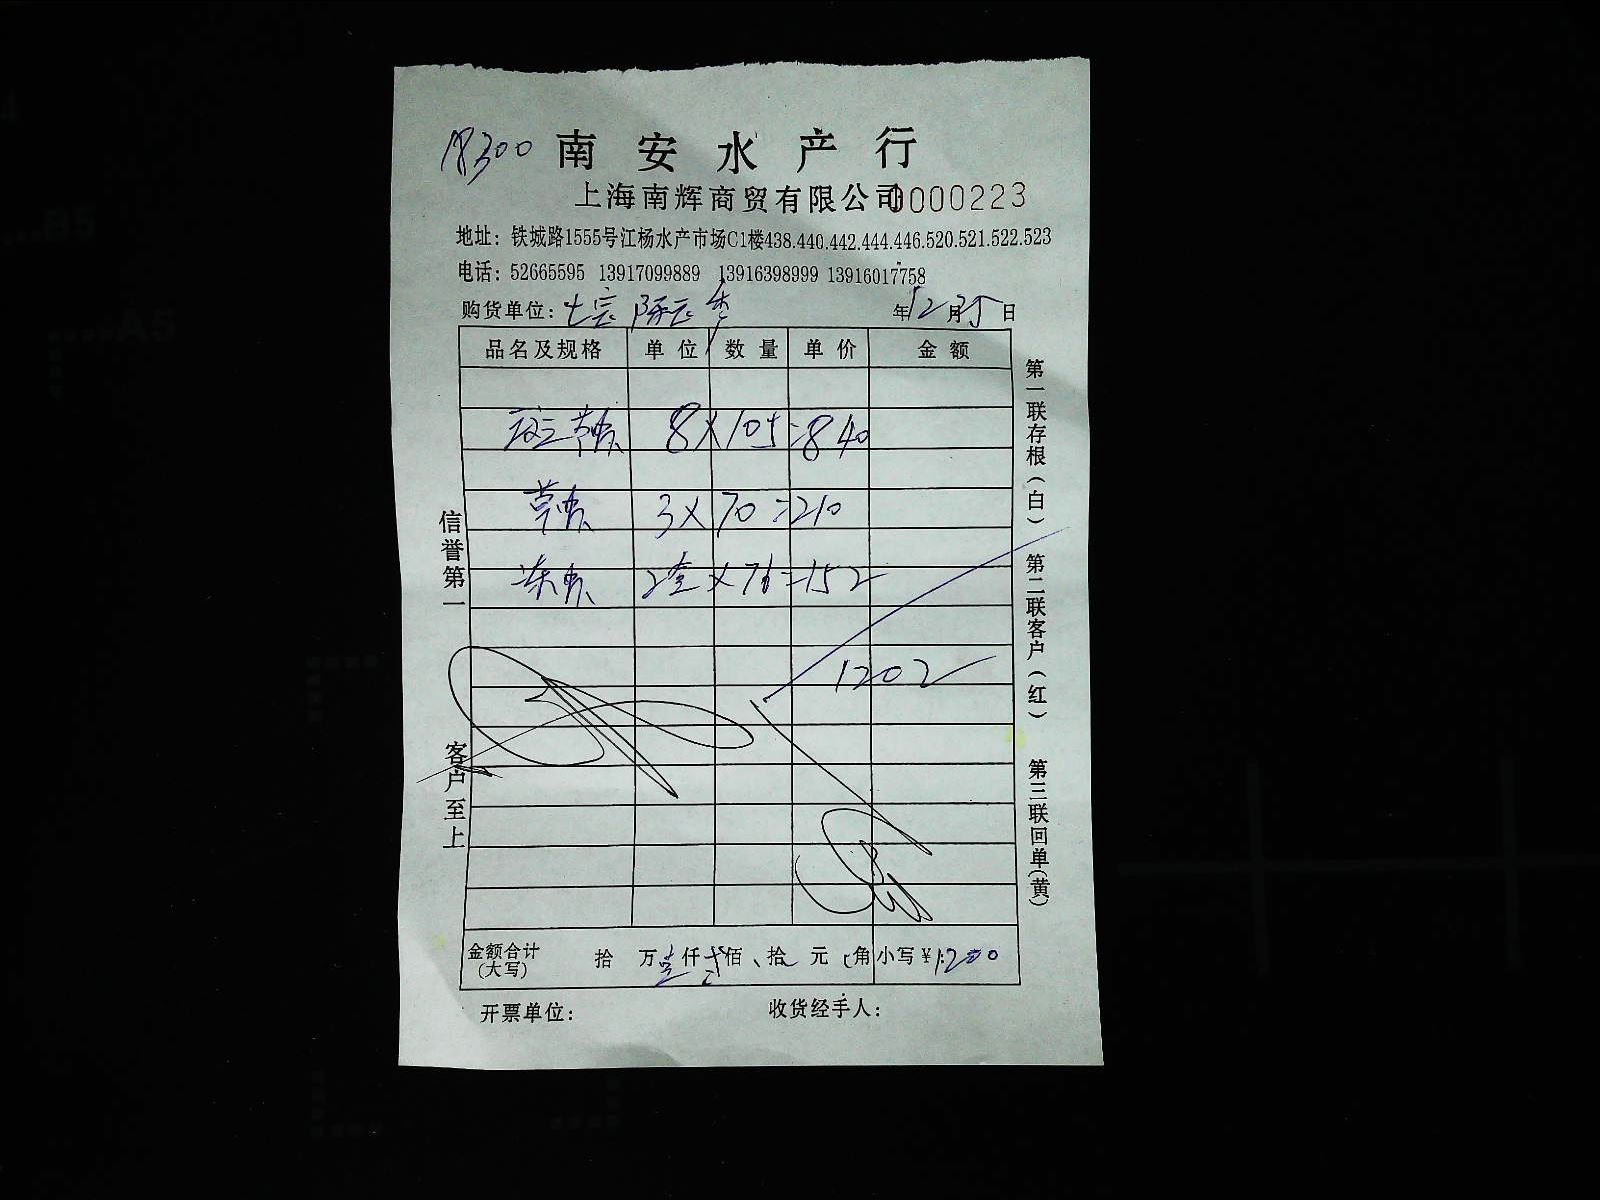 300 南安水产行
上海南辉商贸有限公司 0000223
地址：铁城路1555号江杨水产市场C1楼438.440.442.444.446.520.521.522.523
电话：52665595 13917099889 13916398999 13916017758
购货单位： 年12月25日
品名及规格 单位 数量 单价 金额
8×105=840
草虾 3×70=210
冻虾 2盒×76=152
1202
金额合计（大写） 拾 万壹仟贰佰 拾 元 角 小写￥1200
开票单位： 收货经手人：
信誉第一 客户至上
第一联存根（白） 第二联客户（红） 第三联回单（黄）